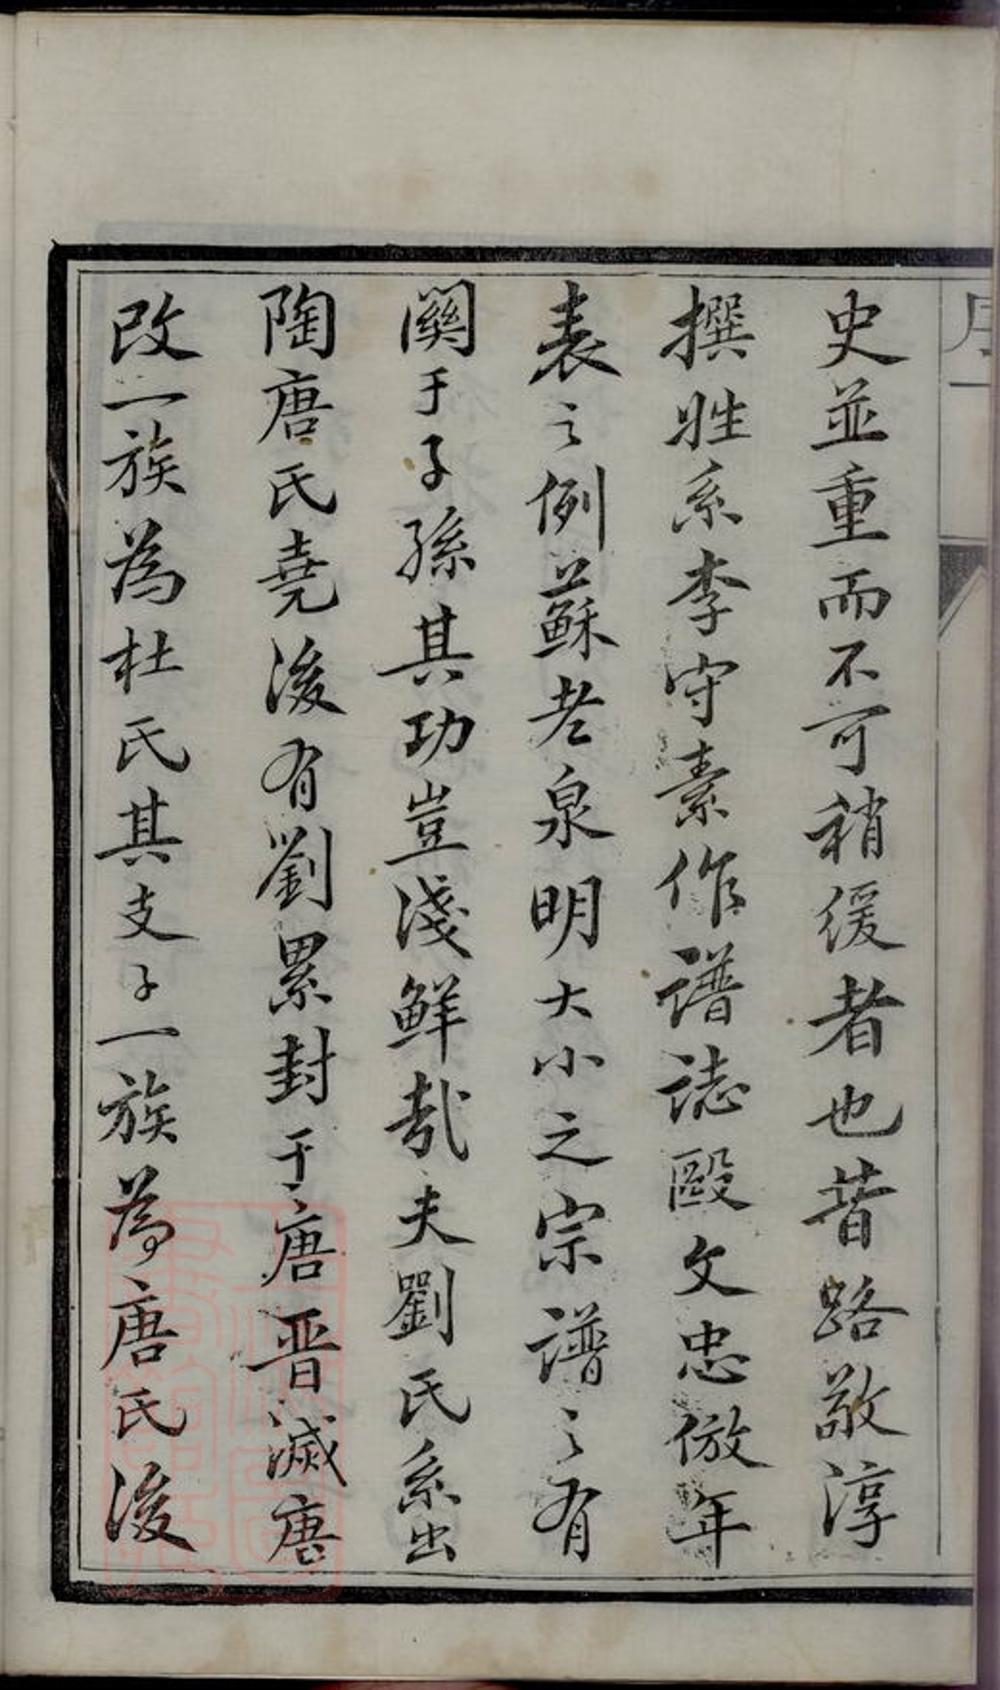 史並重而不可稍緩者也昔路敬淳
撰姓系李守素作譜誌毆文忠倣年
表之例蘇老泉明大小之宗譜之有
關于子孫其功豈淺鮮哉夫劉氏系出
陶唐氏堯後有劉累封于唐晋滅唐
改一族為杜氏其支子一族為唐氏後